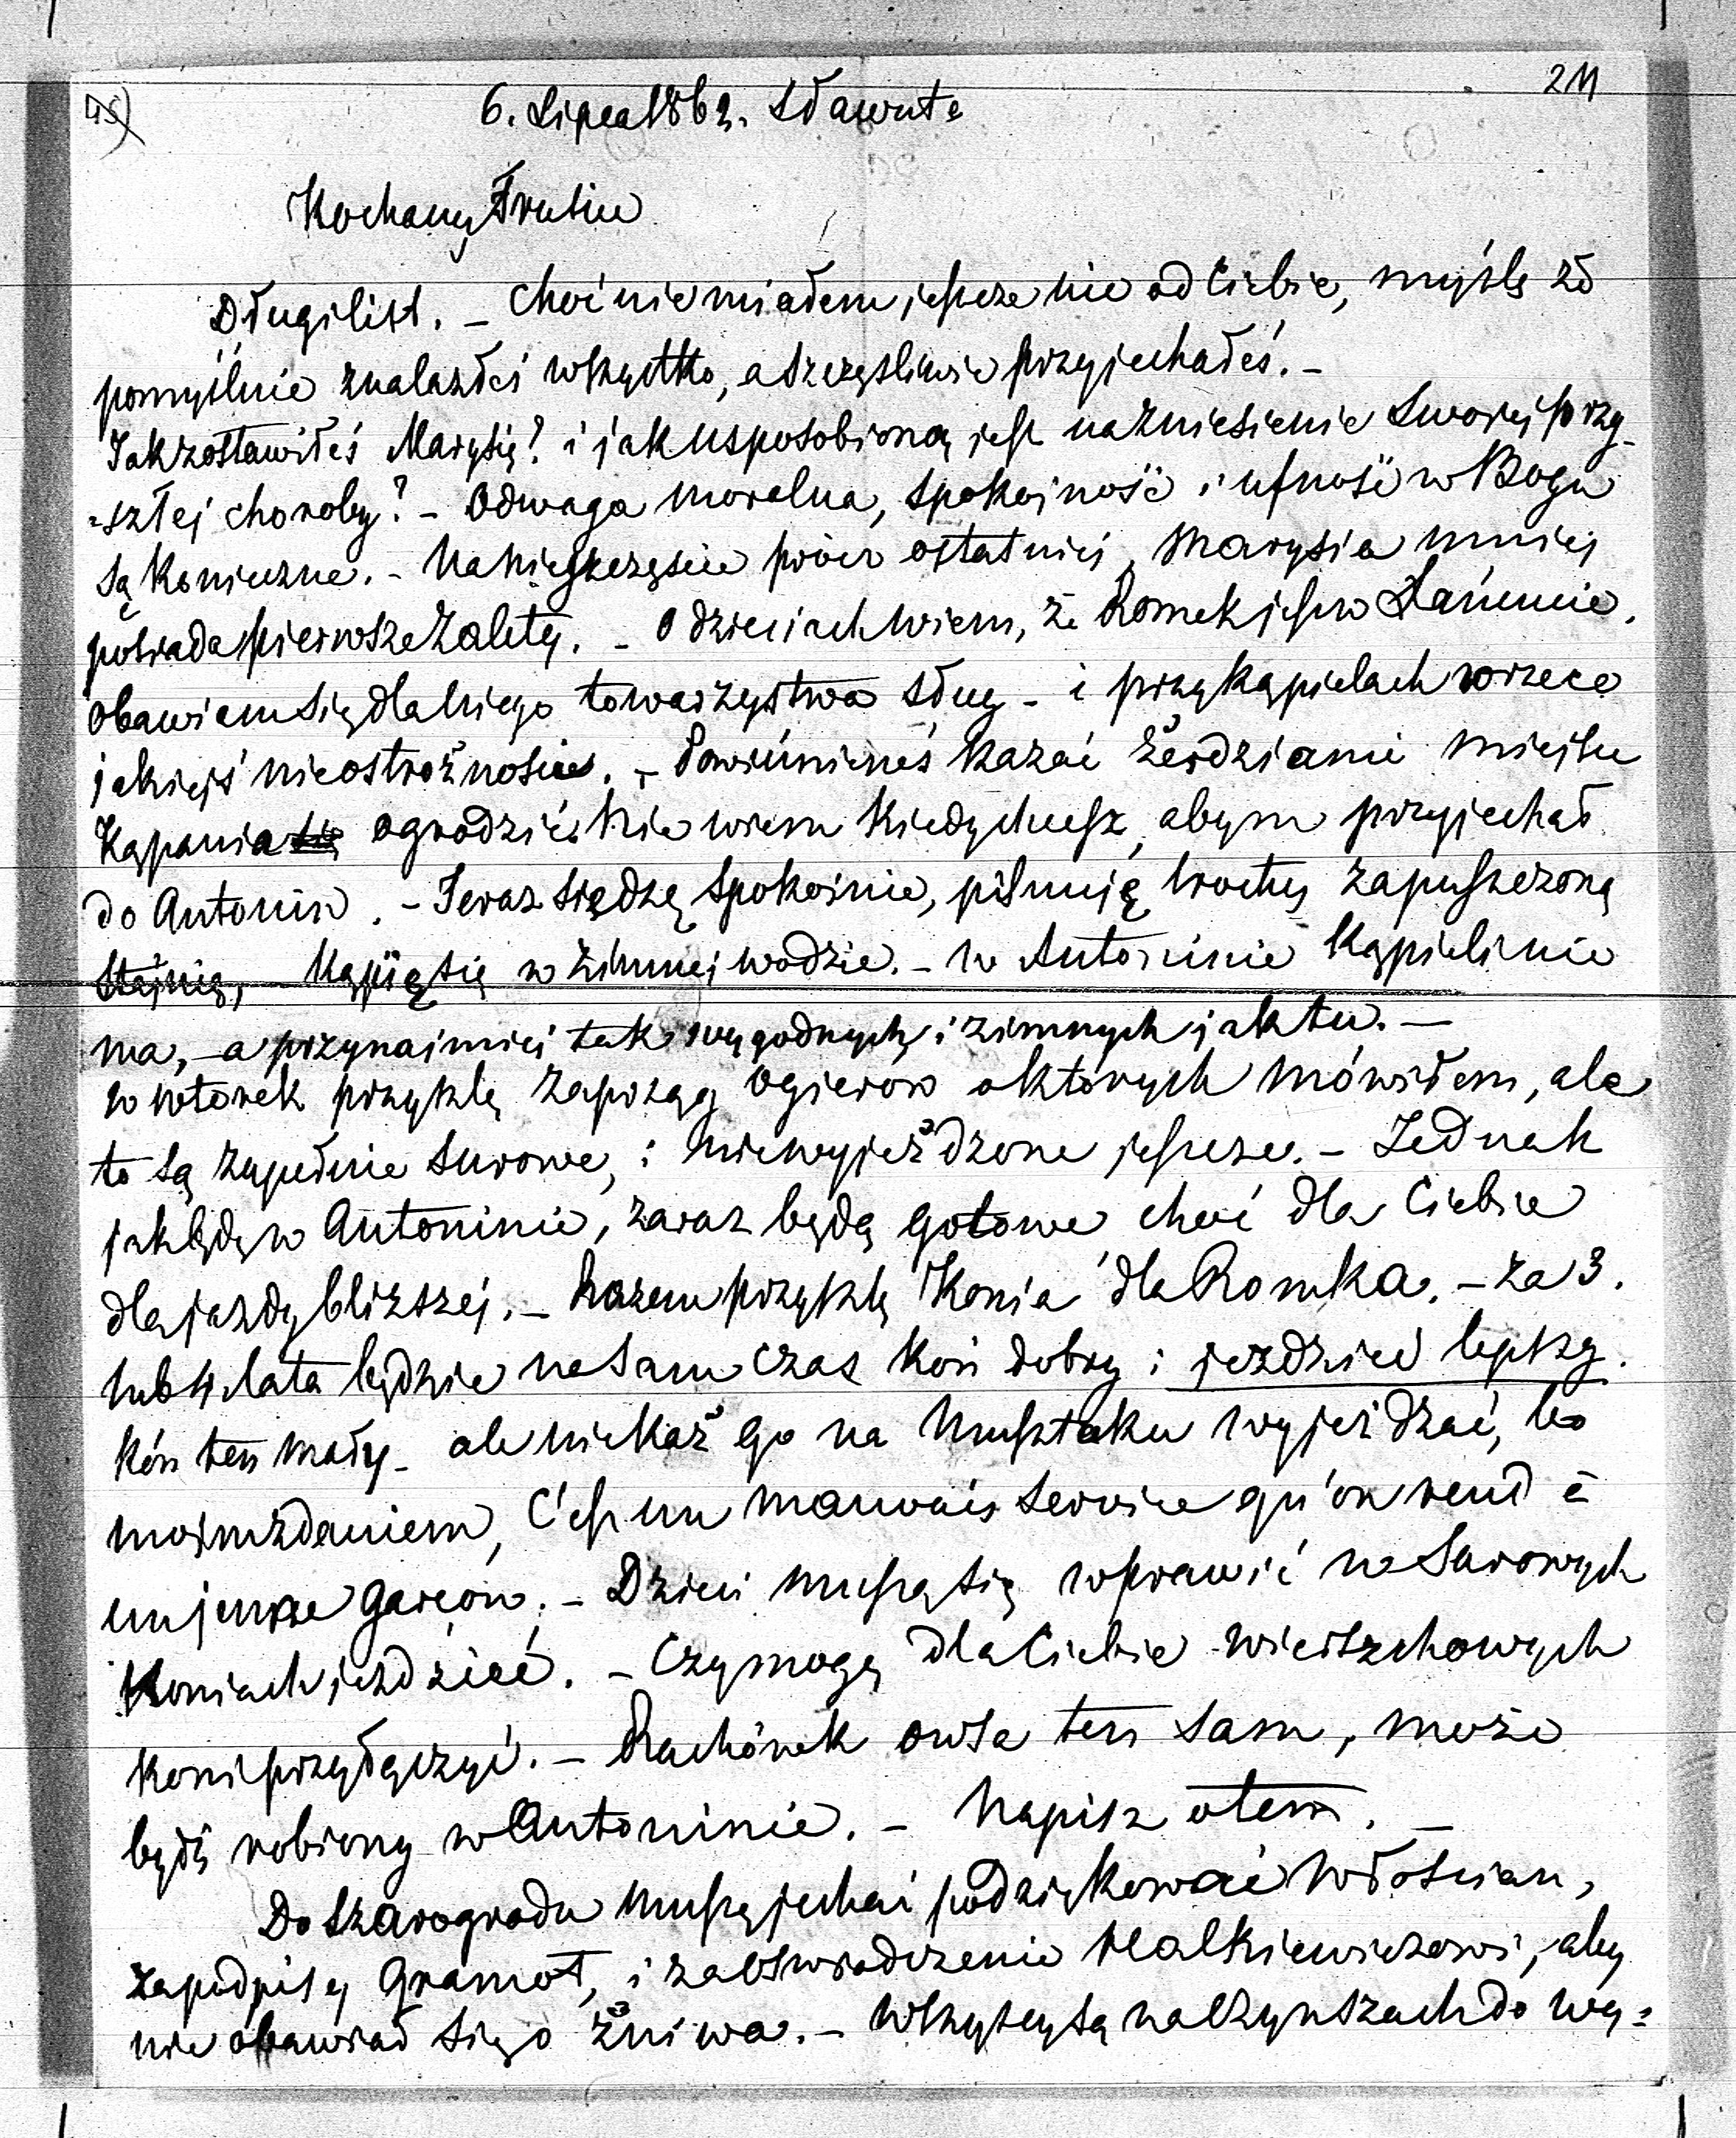 45)
211
6. Lipca 1862. Sławuta
Kochany Frusiu
Długi list. – Choć nie miałem jeszcze nic od Ciebie, myślę że
pomyślnie znalazłeś wszystko, a szczęśliwie przyjechałeś. –
Jak zostawiłeś Marysię? i jak usposobioną jest na zniesienie swojej przy-
-szłej choroby? – Odwaga moralna, spokojność i ufność w Bogu
są konieczne. – Na nieszczęście prócz ostatniej, Marysia mniej
posiada pierwsze zalety. – O dzieciach wiem, że Romek jest w Łańcucie.
Obawiam się dla niego towarzystwa sług – i przy kąpielach w rzece
jakiejś nieostrożności. – Powinieneś kazać żerdziami miejsce
kąpania ogrodzić. Nie wiem kiedy chcesz, abym przyjechał
do Antonin. – Teraz siedzę spokojnie, pilnuję trochę zapuszczoną
stajnię, – kąpię się w zimnej wodzie. – w Antoninie kąpieli nie
ma, – a przynajmniej tak wygodnych i zimnych jak tu. –
w wtorek przyszlę zaprzęg ogierów o których mówiłem, ale
to są zupełnie surowe, i niewyjeżdżone jeszcze. – Jednak
jak będę w Antoninie, zaraz będą gotowe choć dla Ciebie
dla jazdy bliższej. – Razem przyszlę konia dla Romka. – za 3.
lub 4 lata będzie na sam czas koń dobry i jeździec lepszy.
Koń ten mały – ale nie każ go na Munsztuku wyjeżdżać, bo
mojm zdaniem, C'est un mauvais service qu'on rend à
un jeune garçon. – Dzieci muszą się wprawić na surowych
koniach jeździć. – Czy mogę dla Ciebie wierszchowych
koni przyłączyć. – Rachónek owsa ten sam, może
będź robiony w Antoninie. – Napisz o tem. –
Do Szarogrodu muszę jechać podziękować Włościan,
za podpisy Gramot, i zaoświadczenie Malkiewiczowi, aby
nie obawiał się o żniwa. – Wszyscy są na Czynszach do wy-